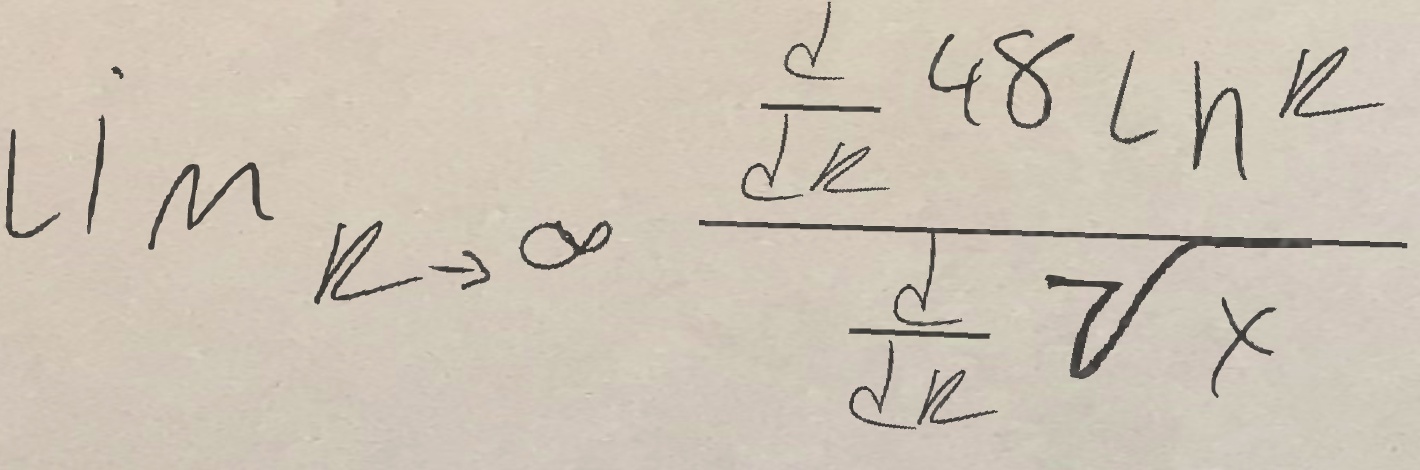 lim k→∞ (d/dk 48 ln k) / (d/dk √x)